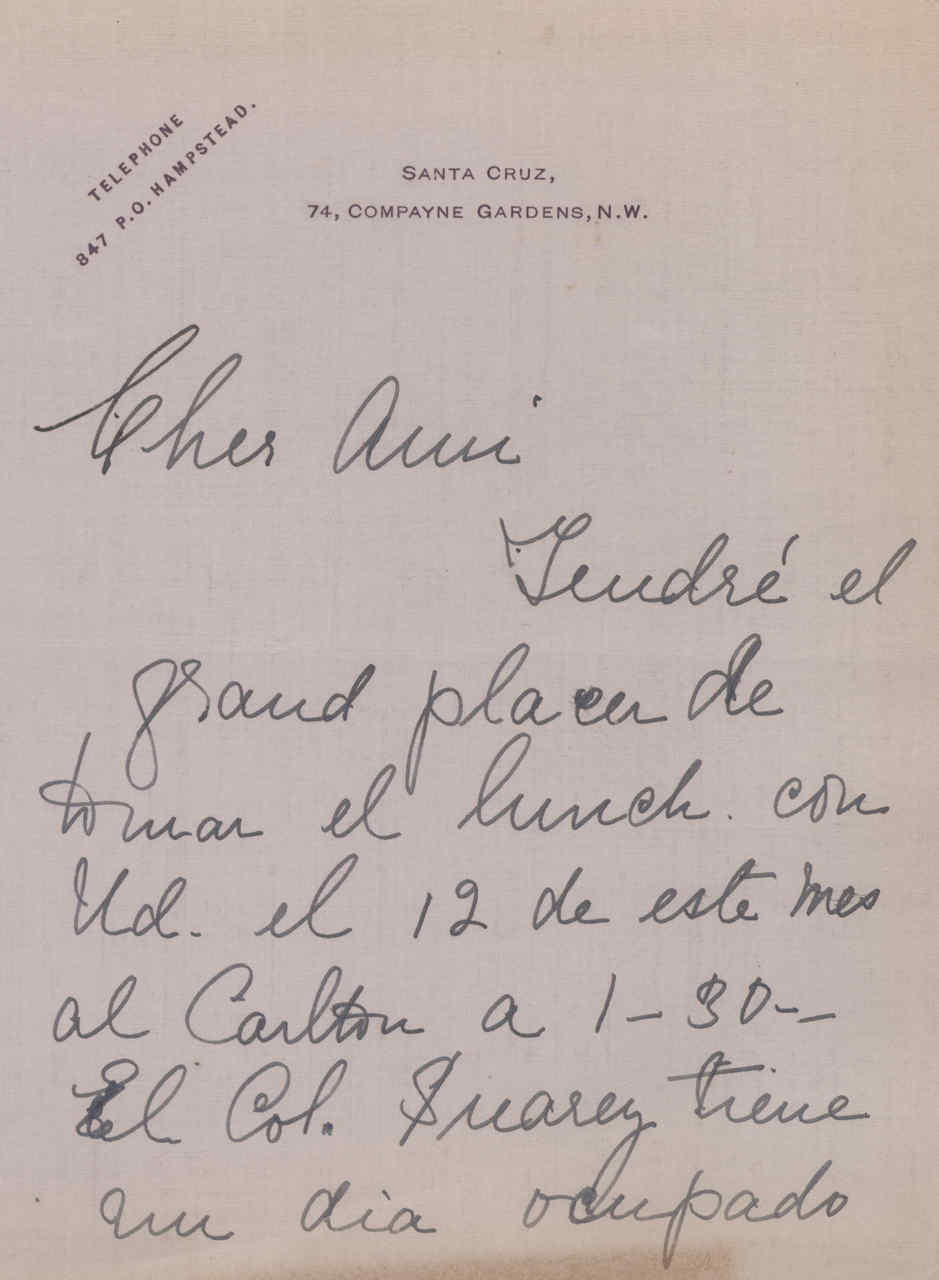 TELEPHONE
847 P.O. HAMPSTEAD.
SANTA CRUZ,
74, COMPAYNE GARDENS, N.W.
Cher Ami
Tendré el
grand placer de
tomar el lunch. con
Ud. el 12 de este mes
al Carlton a 1-30--
El Col. Suarez tiene
un dia ocupado